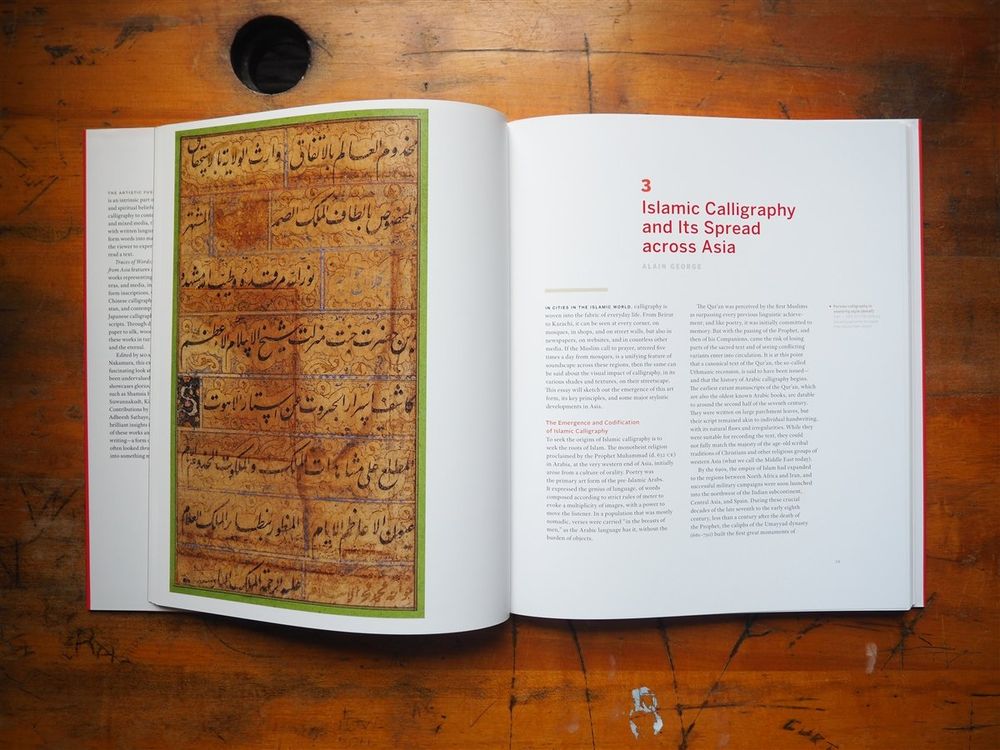 THE ARTISTIC
is an intrinsic part
and spiritual
calligraphy to
and mixed media,
with written
form words into
the viewer to
read a text.
Traces of Words
from Asia features
works representing
eras, and media, in
form inscriptions,
Chinese
stan, and
Japanese
scripts. Through
paper to silk,
these works in turn
and the eternal.
Edited by
Nakamura, this
fascinating look
been undervalued
showcases
such as Shamsia
Suwannakudt,
Contributions by
Adheesh Sathaye,
brilliant insights
of these works
writing—a form
often looked
into something
مخدوم العالم بالاتفاق وارث الولاية بالاستحقاق
المخصوص بالطاف الملك الصمد المشتهر
نور الله مرقده وطيب مشهده
حضرت جنت منزلت شيخ الاسلام الاعظم
كاشف اسرار الجبروت عن استار اللاهوت
المطلع على مشاهدات الملك والملكوت
المنظور بنظار الملك العلام
عليه الرحمة
3
Islamic Calligraphy
and Its Spread
across Asia
ALAIN GEORGE
IN CITIES IN THE ISLAMIC WORLD, calligraphy is
woven into the fabric of everyday life. From Beirut
to Karachi, it can be seen at every corner, on
mosques, in shops, and on street walls, but also in
newspapers, on websites, and in countless other
media. If the Muslim call to prayer, uttered five
times a day from mosques, is a unifying feature of
soundscape across these regions, then the same can
be said about the visual impact of calligraphy, in its
various shades and textures, on their streetscape.
This essay will sketch out the emergence of this art
form, its key principles, and some major stylistic
developments in Asia.
The Emergence and Codification
of Islamic Calligraphy
To seek the origins of Islamic calligraphy is to
seek the roots of Islam. The monotheist religion
proclaimed by the Prophet Muhammad (d. 632 CE)
in Arabia, at the very western end of Asia, initially
arose from a culture of orality. Poetry was
the primary art form of the pre-Islamic Arabs.
It expressed the genius of language, of words
composed according to strict rules of meter to
evoke a multiplicity of images, with a power to
move the listener. In a population that was mostly
nomadic, verses were carried “in the breasts of
men,” as the Arabic language has it, without the
burden of objects.
The Qur’an was perceived by the first Muslims
as surpassing every previous linguistic achieve-
ment, and like poetry, it was initially committed to
memory. But with the passing of the Prophet, and
then of his Companions, came the risk of losing
parts of the sacred text and of seeing conflicting
variants enter into circulation. It is at this point
that a canonical text of the Qur’an, the so-called
Uthmanic recension, is said to have been issued—
and that the history of Arabic calligraphy begins.
The earliest extant manuscripts of the Qur’an, which
are also the oldest known Arabic books, are datable
to around the second half of the seventh century.
They were written on large parchment leaves, but
their script remained akin to individual handwriting,
with its natural flaws and irregularities. While they
were suitable for recording the text, they could
not fully match the majesty of the age-old scribal
traditions of Christians and other religious groups of
western Asia (what we call the Middle East today).
By the 690s, the empire of Islam had expanded
to the regions between North Africa and Iran, and
successful military campaigns were soon launched
into the northwest of the Indian subcontinent,
Central Asia, and Spain. During these crucial
decades of the late seventh to the early eighth
century, less than a century after the death of
the Prophet, the caliphs of the Umayyad dynasty
(661–750) built the first great monuments of